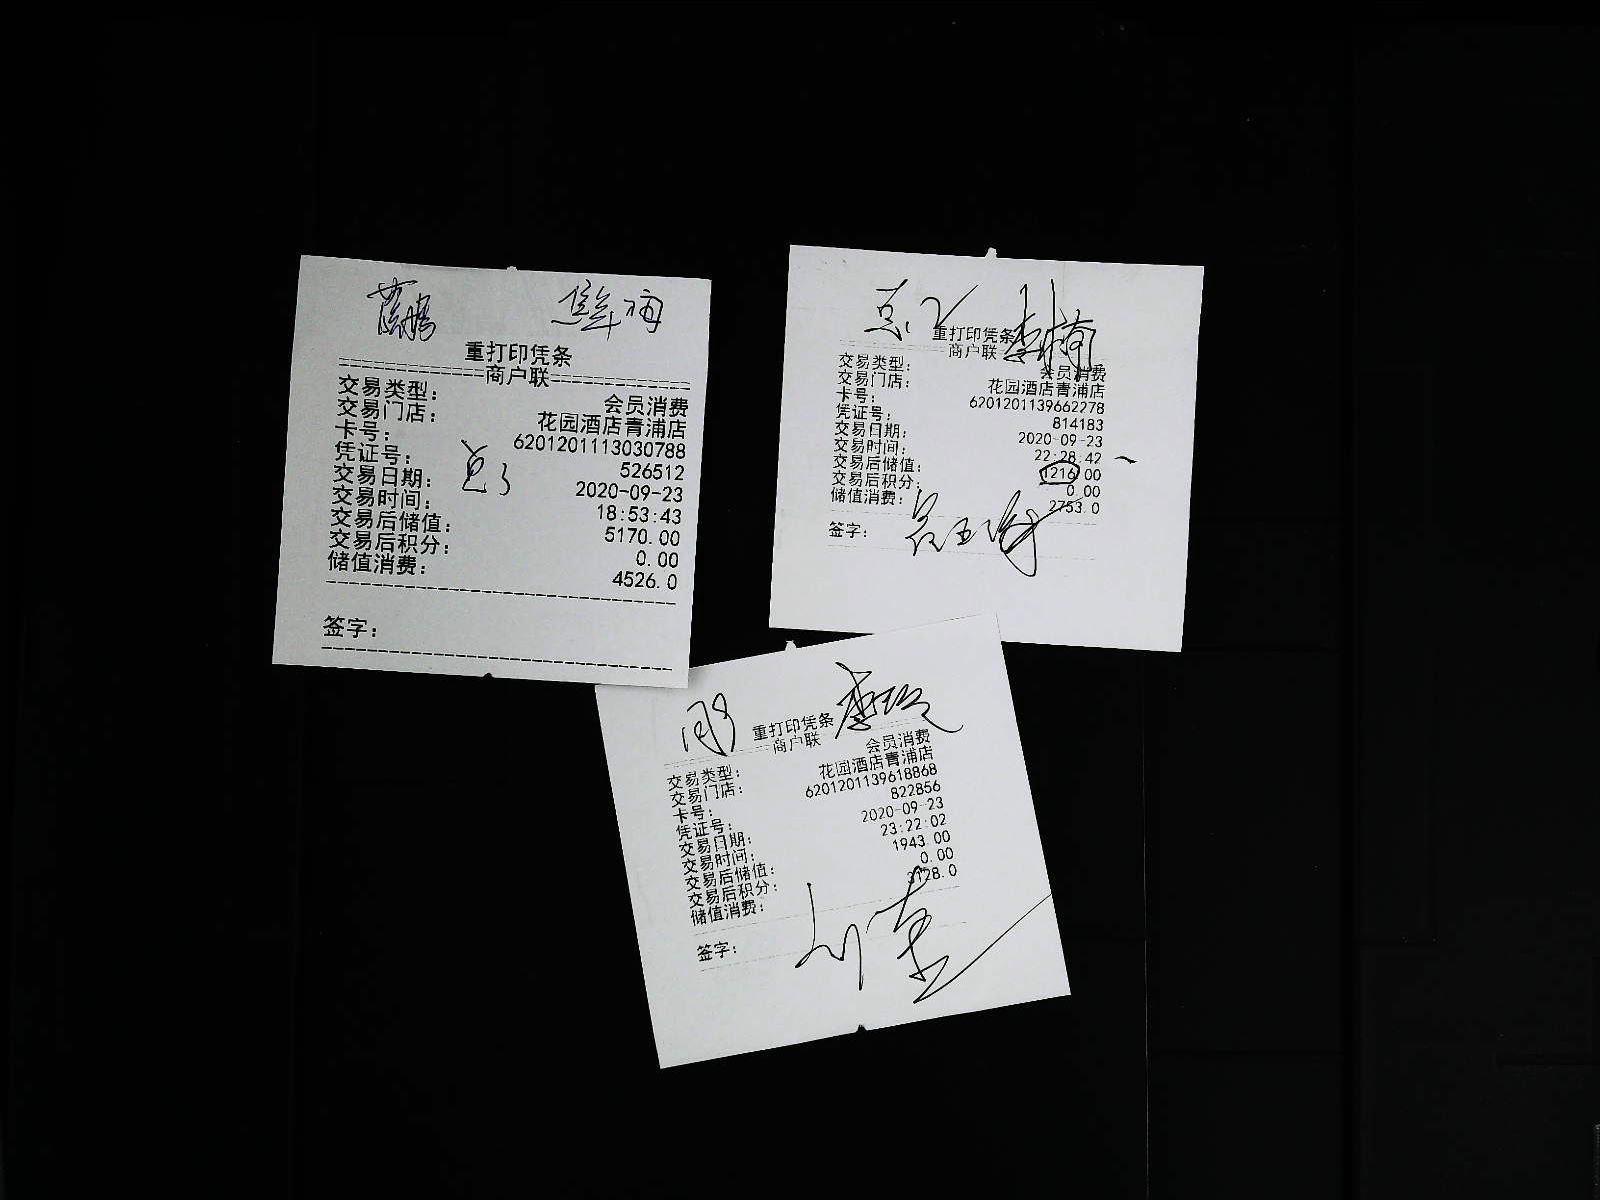 重打印凭条
商户联
交易类型： 会员消费
交易门店： 花园酒店青浦店
卡号： 6201201113030788
凭证号： 526512
交易日期： 2020-09-23
交易时间： 18:53:43
交易后储值： 5170.00
交易后积分： 0.00
储值消费： 4526.0
签字：
重打印凭条
商户联
交易类型： 会员消费
交易门店： 花园酒店青浦店
卡号： 6201201139662278
凭证号： 814183
交易日期： 2020-09-23
交易时间： 22:28:42
交易后储值： 1216.00
交易后积分： 0.00
储值消费： 2753.0
签字：
重打印凭条
商户联
交易类型： 会员消费
交易门店： 花园酒店青浦店
卡号： 6201201139618868
凭证号： 822856
交易日期： 2020-09-23
交易时间： 23:22:02
交易后储值： 1943.00
交易后积分： 0.00
储值消费： 3128.0
签字：